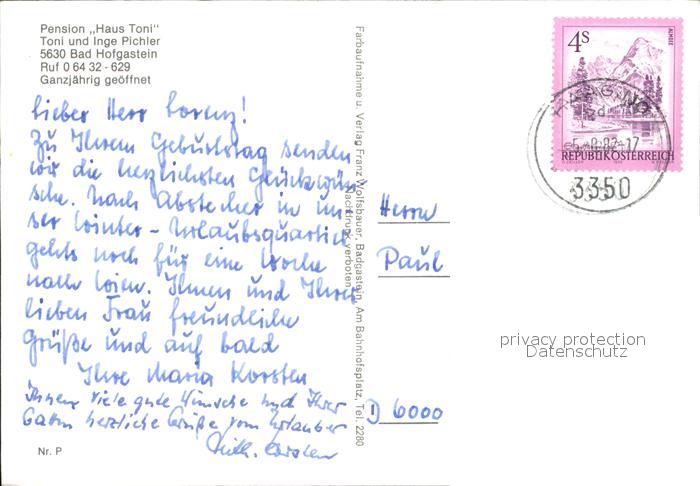 Pension „Haus Toni"
Toni und Inge Pichler
5630 Bad Hofgastein
Ruf 0 64 32 - 629
Ganzjährig geöffnet
Lieber Herr Lorenz!
Zu Ihrem Geburtstag senden
wir die herzlichsten Glückwün-
sche. Nach Abstecher in un-
ser Winter-Urlaubsquartier
gehts noch für eine Woche
nach Wien. Ihnen und Ihrer
lieben Frau freundliche
Grüße und auf bald
Ihre Maria Korsten
Ihnen viele gute Wünsche und Ihrer
Gattin herzliche Grüße vom Urlauber
Korsten
Nr. P
Farbaufnahme u. Verlag Franz Wolfsbauer, Badgastein, Am Bahnhofsplatz, Tel. 2280
Nachdruck verboten
4S
ALMSEE
REPUBLIK ÖSTERREICH
3350
Herrn
Paul
D 6000
privacy protection
Datenschutz